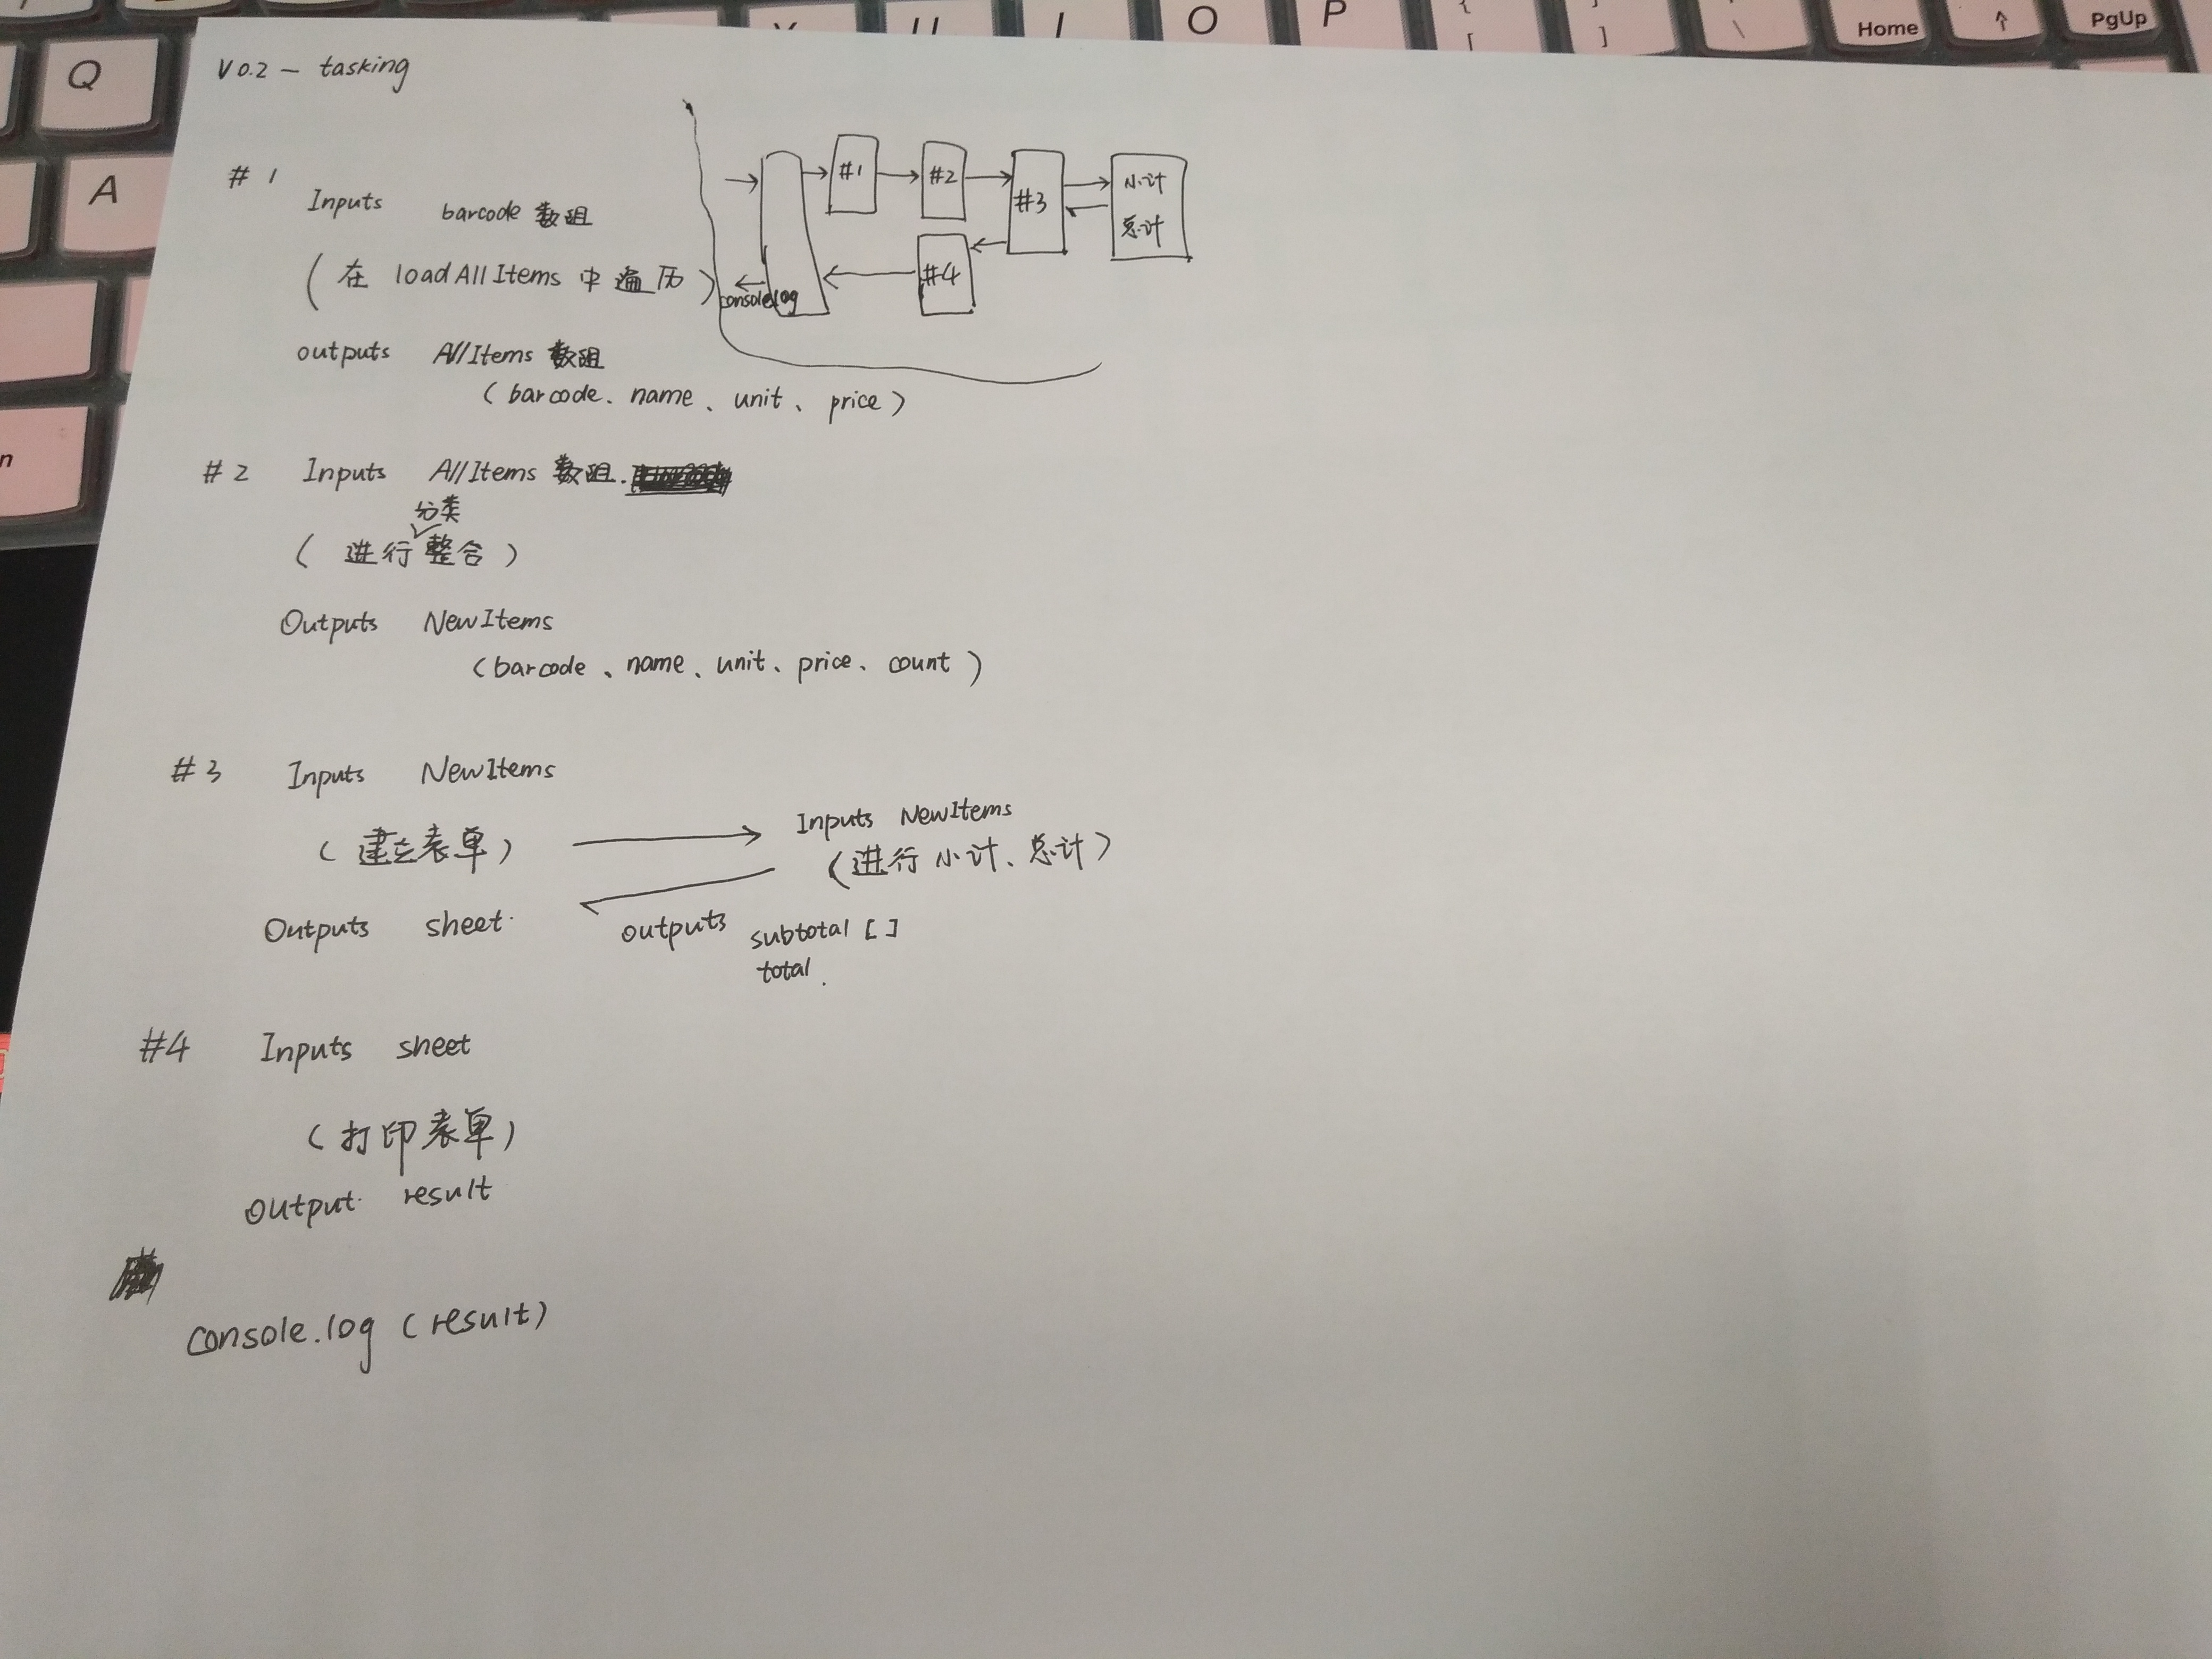 V0.2 - tasking
#1
Inputs barcode 数组
(在 loadAllItems 中遍历)
outputs AllItems 数组
(barcode、name、unit、price)
#1 #2 #3 小计
总计
#4
console.log
#2 Inputs AllItems 数组.
分类
(进行整合)
Outputs NewItems
(barcode、name、unit、price、count)
#3 Inputs NewItems
(建立表单)
Outputs sheet.
Inputs NewItems
(进行小计、总计)
outputs subtotal []
total.
#4 Inputs sheet
(打印表单)
Output. result
console.log (result)
Q
A
n
U
I
O
P
{
[
}
]
\
Home
↑
PgUp